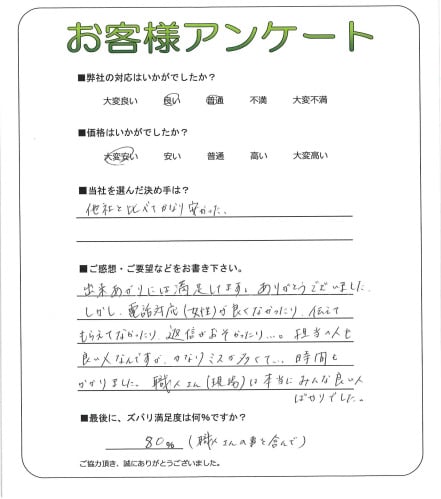 お客様アンケート
■弊社の対応はいかがでしたか?
大変良い 良い 普通 不満 大変不満
■価格はいかがでしたか?
大変安い 安い 普通 高い 大変高い
■当社を選んだ決め手は?
他社と比べてかなり安かった、
■ご感想・ご要望などをお書き下さい。
出来あがりには満足してます。ありがとうございました。
しかし、電話対応(女性)が良くなかったり、伝えて
もらえてなかったり、返信がおそかったり…。担当の人も
良い人なんですが、かなりミスが多くて…、時間も
かかりました。職人さん(現場)は本当にみんな良い人
ばかりでした。
■最後に、ズバリ満足度は何%ですか?
80%(職人さんの事を含んで)
ご協力頂き、誠にありがとうございました。